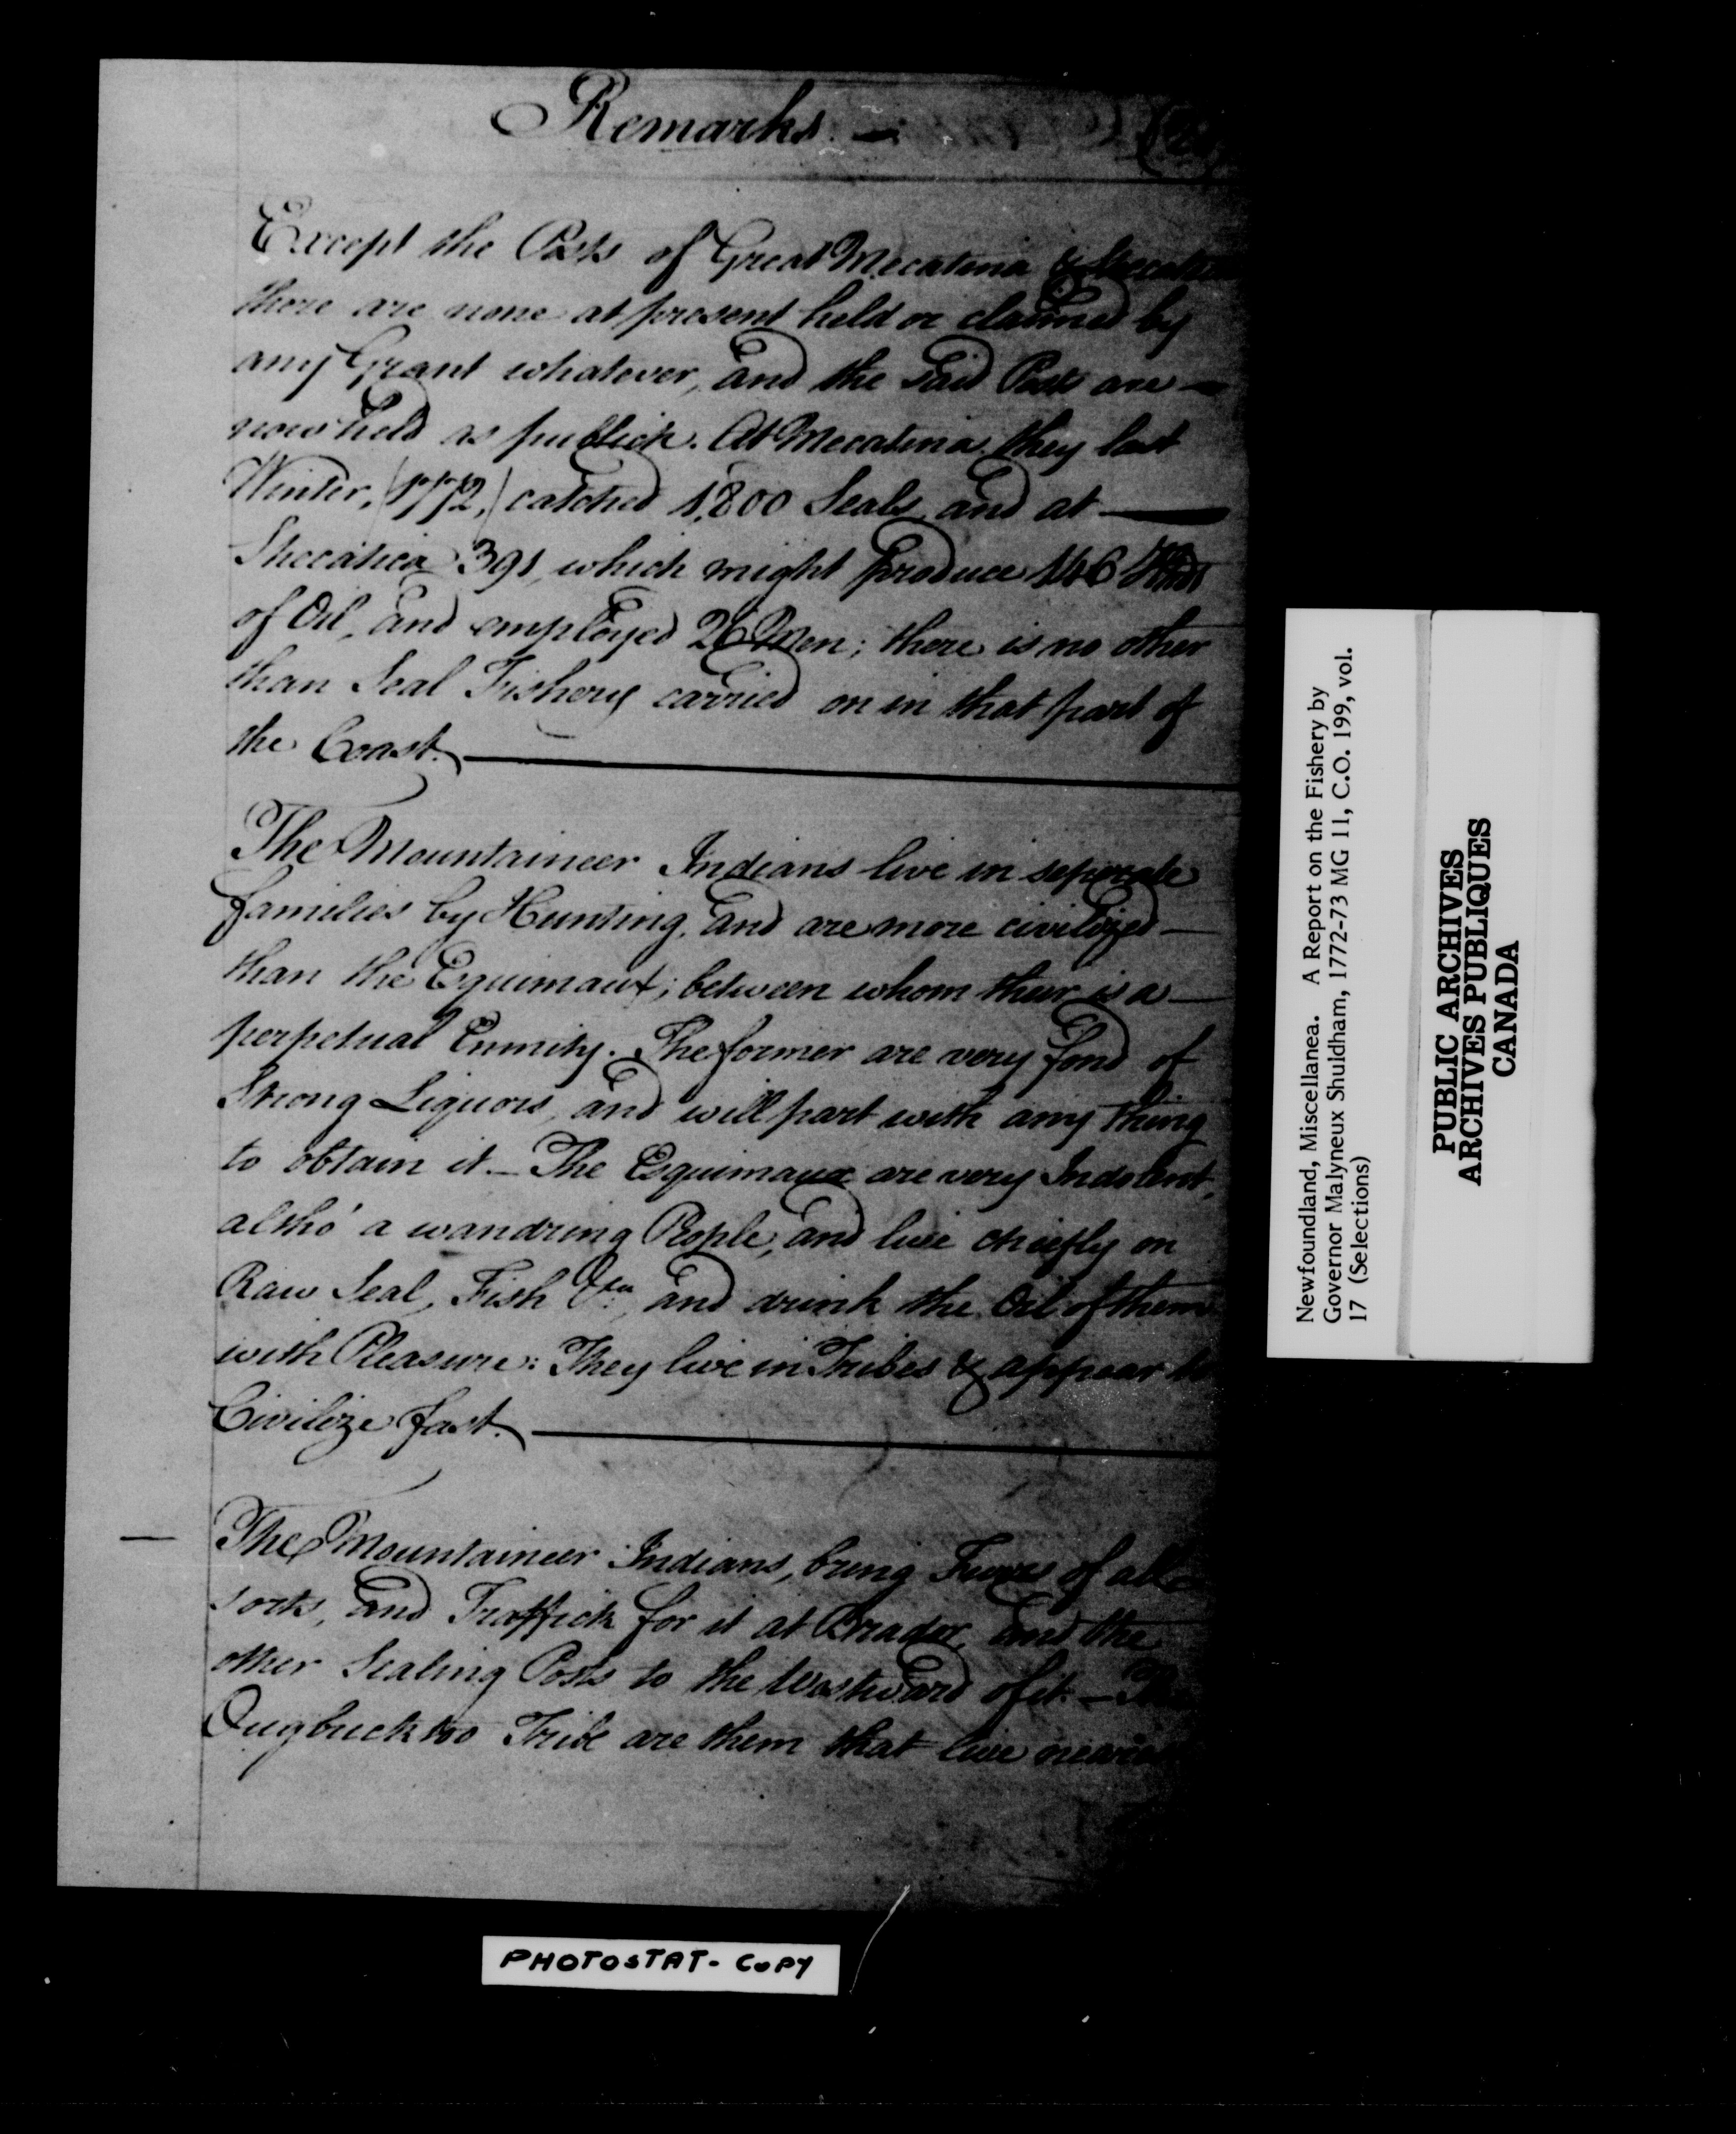 Remarks. —
Except the Posts of Great Mecatina &
there are none at present held or claimed by
any Grant whatever, and the said Posts are —
now held as publick. At Mecatina they last
Winter, (1772,) catched 1,800 Seals, and at —
Shecatica 391, which might produce 146
of Oil, and employed 26 Men; there is no other
than Seal Fishery carried on in that part of
the Coast. —
The Mountaineer Indians live in seperate
families by Hunting, and are more civilized —
than the Equimaux; between whom their is a —
perpetual Enmity. The former are very fond of
Strong Liquors, and will part with any thing
to obtain it. — The Esquimaux are very Indolent,
altho' a wandring People, and live chiefly on
Raw Seal, Fish &ca, and drink the Oil of them
with Pleasure: They live in Tribes & appear to
Civilize fast. —
— The Mountaineer Indians, bring Furrs of all
sorts, and Traffick for it at Brador, and the
other Sealing Posts to the Westward of it. —
Ougbucktoo Tribe are them that live
PHOTOSTAT - COPY
Newfoundland, Miscellanea. A Report on the Fishery by
Governor Malyneux Shuldham, 1772-73 MG 11, C.O. 199, vol.
17 (Selections)
PUBLIC ARCHIVES
ARCHIVES PUBLIQUES
CANADA